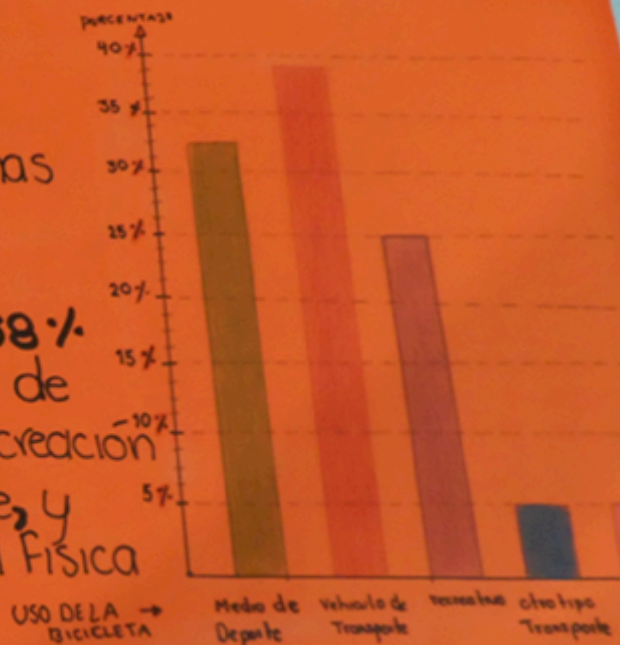 PORCENTAJE
40%
35%
30%
25%
20%
15%
10%
5%
nas
68%
de
creación
e, y
Física
USO DE LA →
BICICLETA
Medio de
Deporte
Vehiculo de
Transporte
recreativo
otro tipo
Transporte